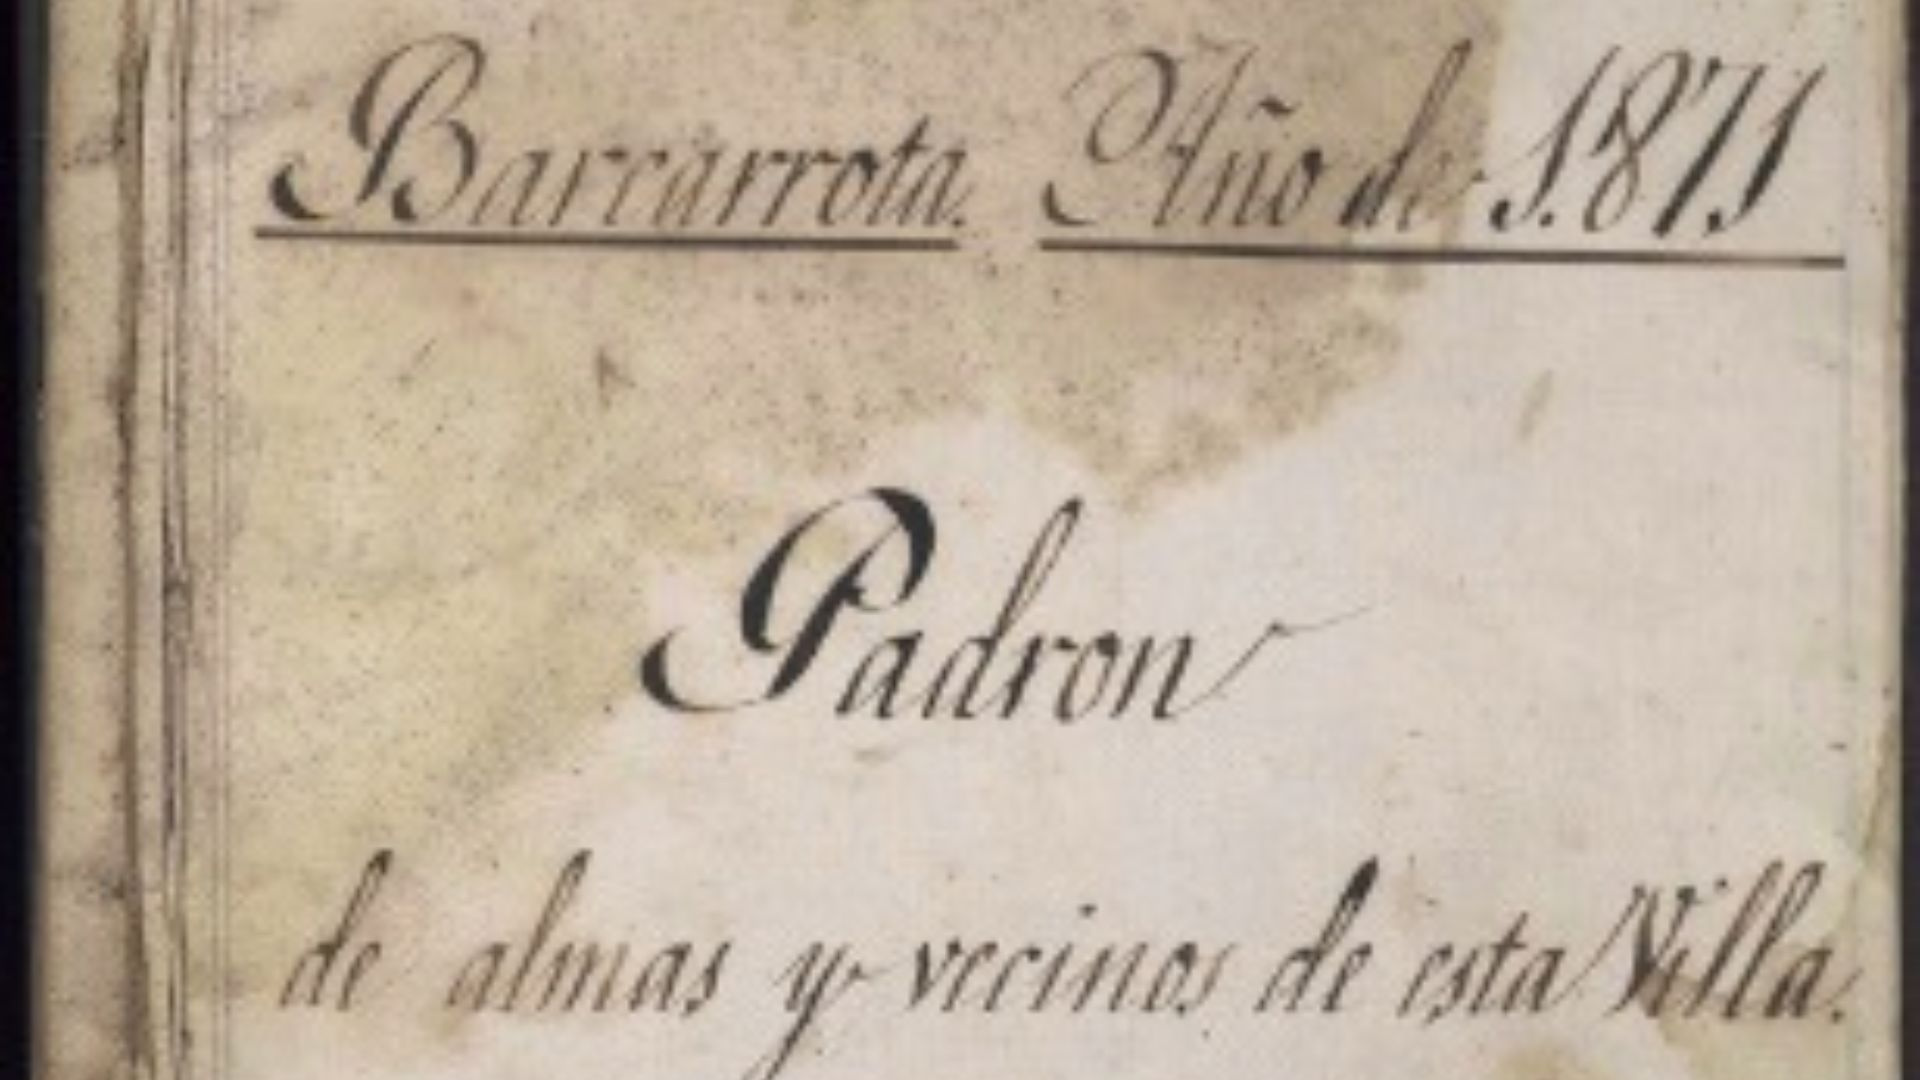 Barcarrota. Año de 1.871
Padron
de almas y vecinos de esta Villa.